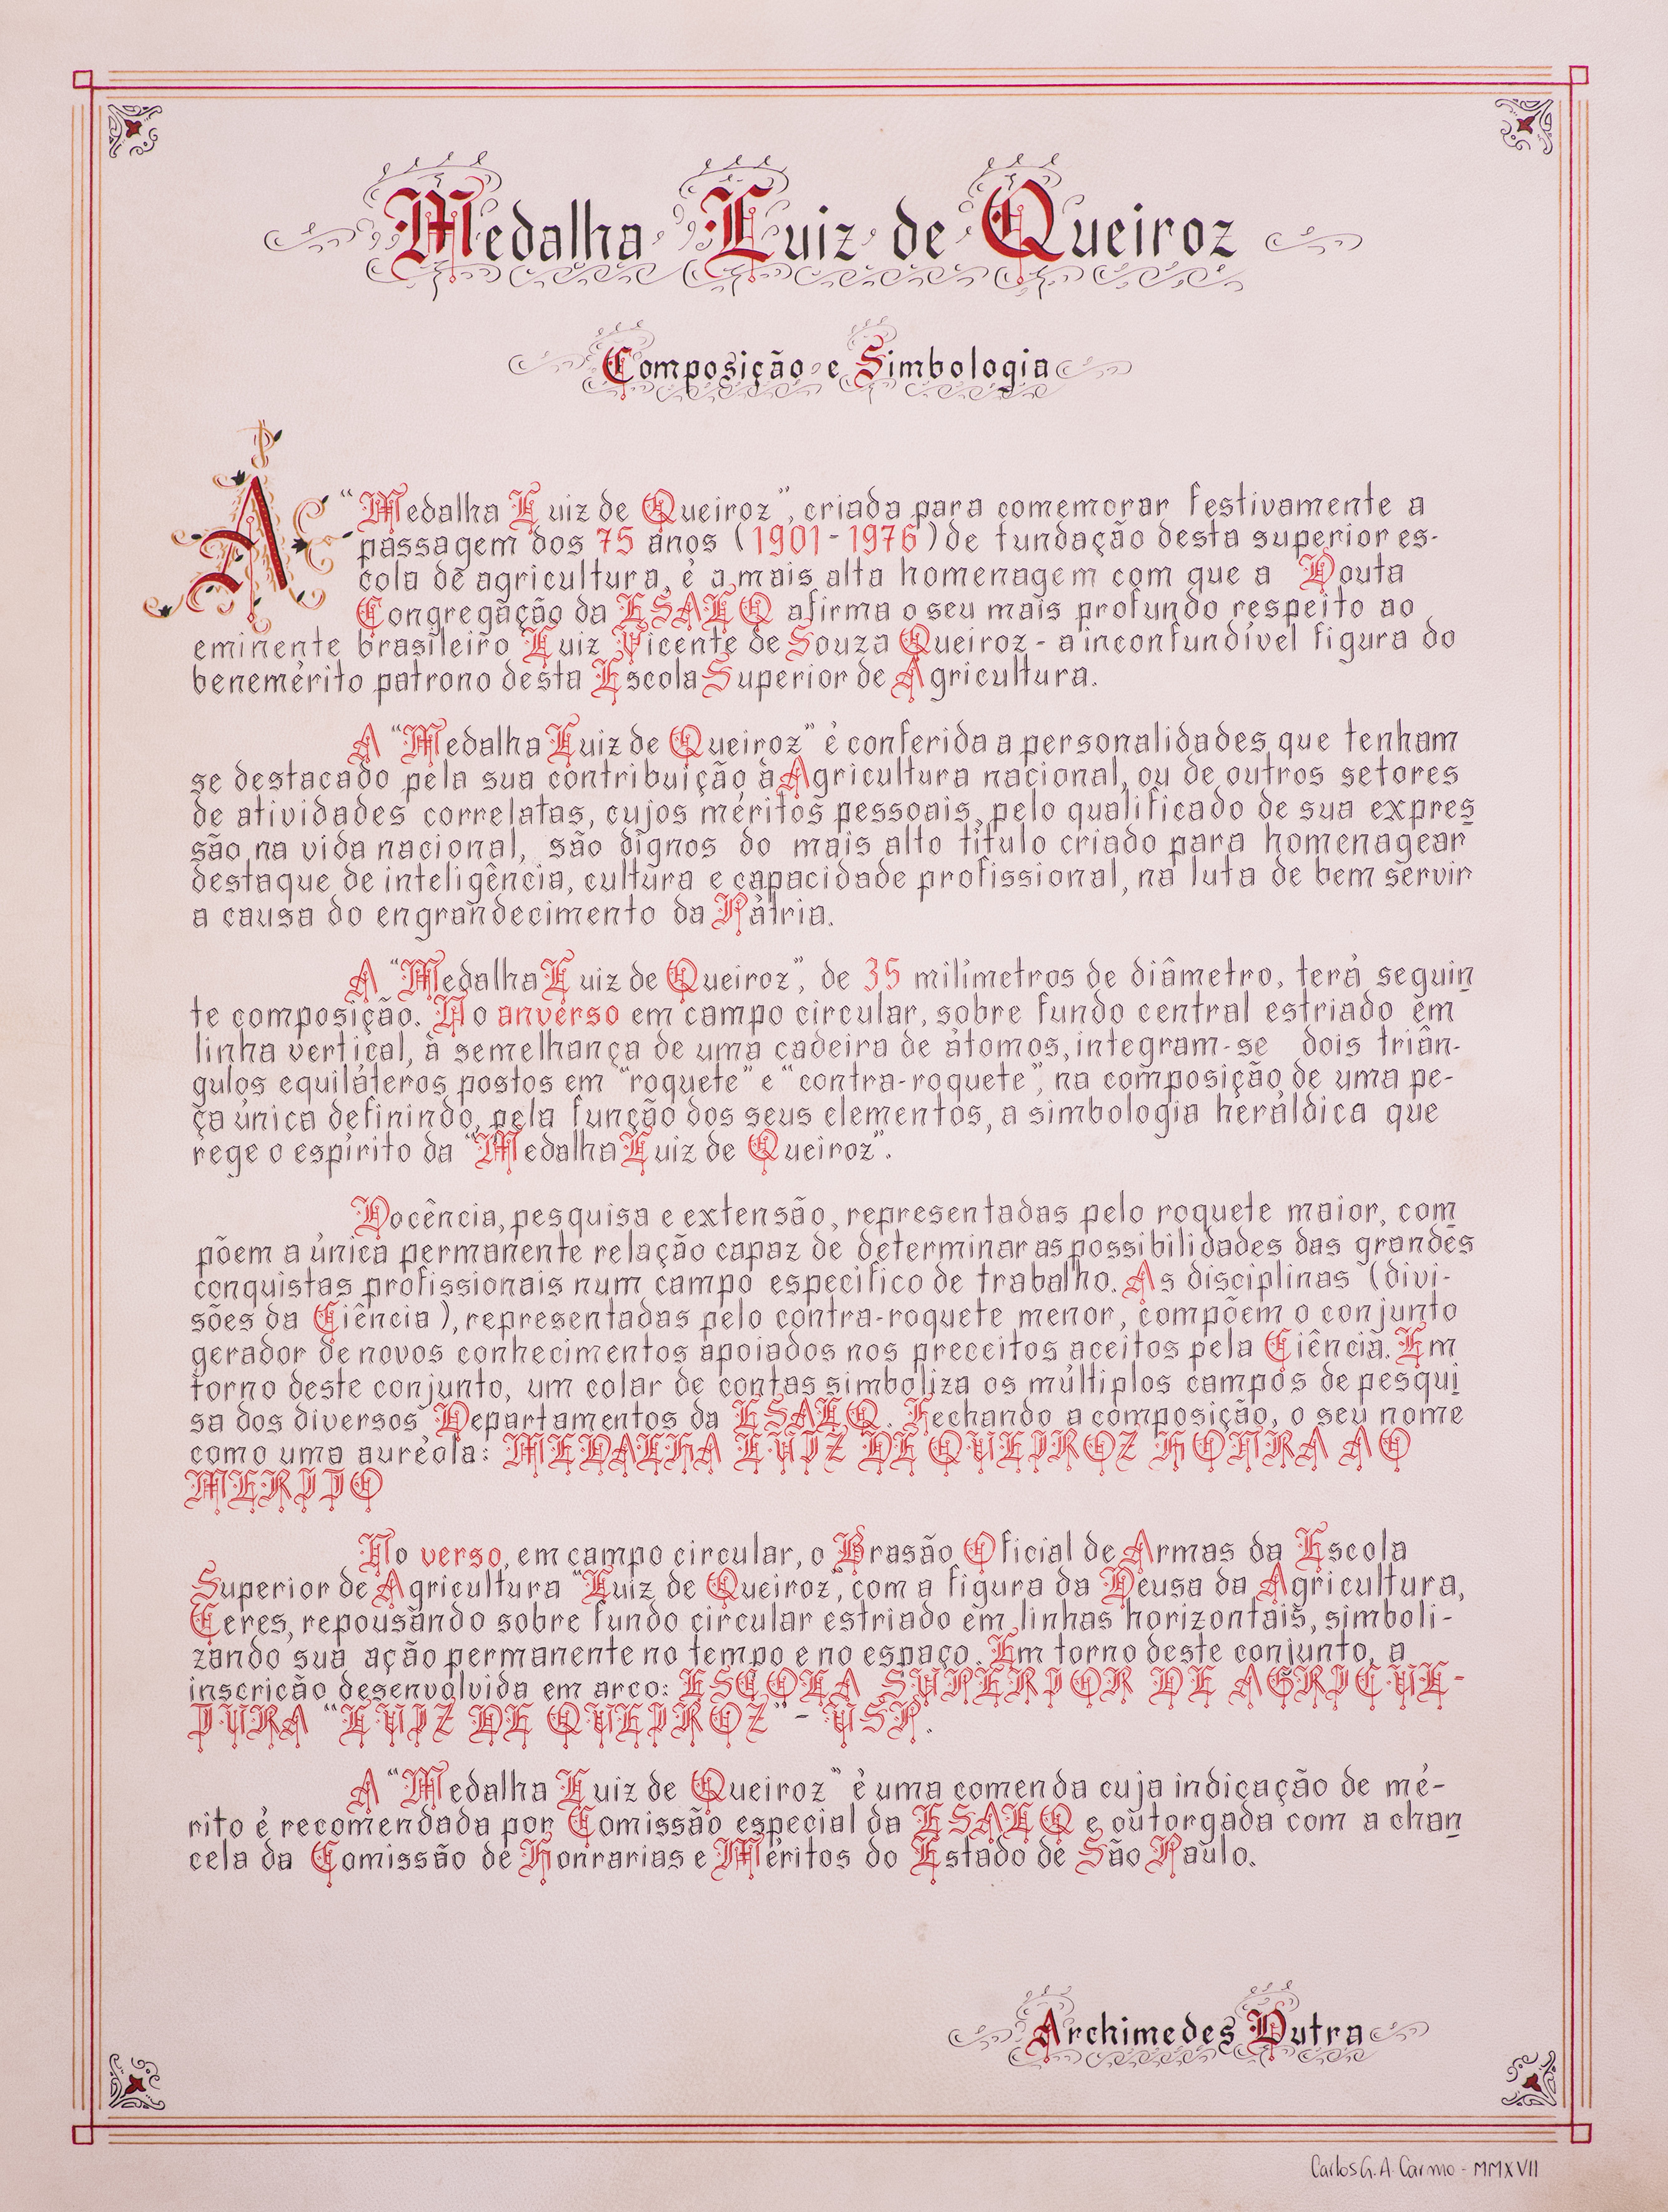 Medalha Luiz de Queiroz
Composição e Simbologia
A "Medalha Luiz de Queiroz", criada para comemorar festivamente a
passagem dos 75 anos (1901-1976) de fundação desta superior es-
cola de agricultura, é a mais alta homenagem com que a Douta
Congregação da ESALQ afirma o seu mais profundo respeito ao
eminente brasileiro Luiz Vicente de Souza Queiroz - a inconfundível figura do
benemérito patrono desta Escola Superior de Agricultura.
A "Medalha Luiz de Queiroz" é conferida a personalidades que tenham
se destacado pela sua contribuição à Agricultura nacional, ou de outros setores
de atividades correlatas, cujos méritos pessoais, pelo qualificado de sua expres
são na vida nacional, são dignos do mais alto título criado para homenagear
destaque de inteligência, cultura e capacidade profissional, na luta de bem servir
a causa do engrandecimento da Pátria.
A "Medalha Luiz de Queiroz", de 35 milímetros de diâmetro, terá seguin
te composição. No anverso em campo circular, sobre fundo central estriado em
linha vertical, à semelhança de uma cadeira de átomos, integram-se dois triân-
gulos equiláteros postos em "roquete" e "contra-roquete", na composição de uma pe-
ça única definindo, pela função dos seus elementos, a simbologia heráldica que
rege o espírito da "Medalha Luiz de Queiroz".
Docência, pesquisa e extensão, representadas pelo roquete maior, com
põem a única permanente relação capaz de determinar as possibilidades das grandes
conquistas profissionais num campo específico de trabalho. As disciplinas (divi-
sões da Ciência), representadas pelo contra-roquete menor, compõem o conjunto
gerador de novos conhecimentos apoiados nos preceitos aceitos pela Ciência. Em
torno deste conjunto, um colar de contas simboliza os múltiplos campos de pesqui
sa dos diversos Departamentos da ESALQ. Fechando a composição, o seu nome
como uma auréola: MEDALHA LUIZ DE QUEIROZ HONRA AO
MERITO
No verso, em campo circular, o Brasão Oficial de Armas da Escola
Superior de Agricultura "Luiz de Queiroz", com a figura da Deusa da Agricultura,
Ceres, repousando sobre fundo circular estriado em linhas horizontais, simboli-
zando sua ação permanente no tempo e no espaço. Em torno deste conjunto, a
inscrição desenvolvida em arco: ESCOLA SUPERIOR DE AGRICUL-
TURA "LUIZ DE QUEIROZ" - USP.
A "Medalha Luiz de Queiroz" é uma comenda cuja indicação de mé-
rito é recomendada por Comissão especial da ESALQ e outorgada com a chan
cela da Comissão de Honrarias e Méritos do Estado de São Paulo.
Archimedes Dutra
Carlos G. A. Carmo - MMXVII